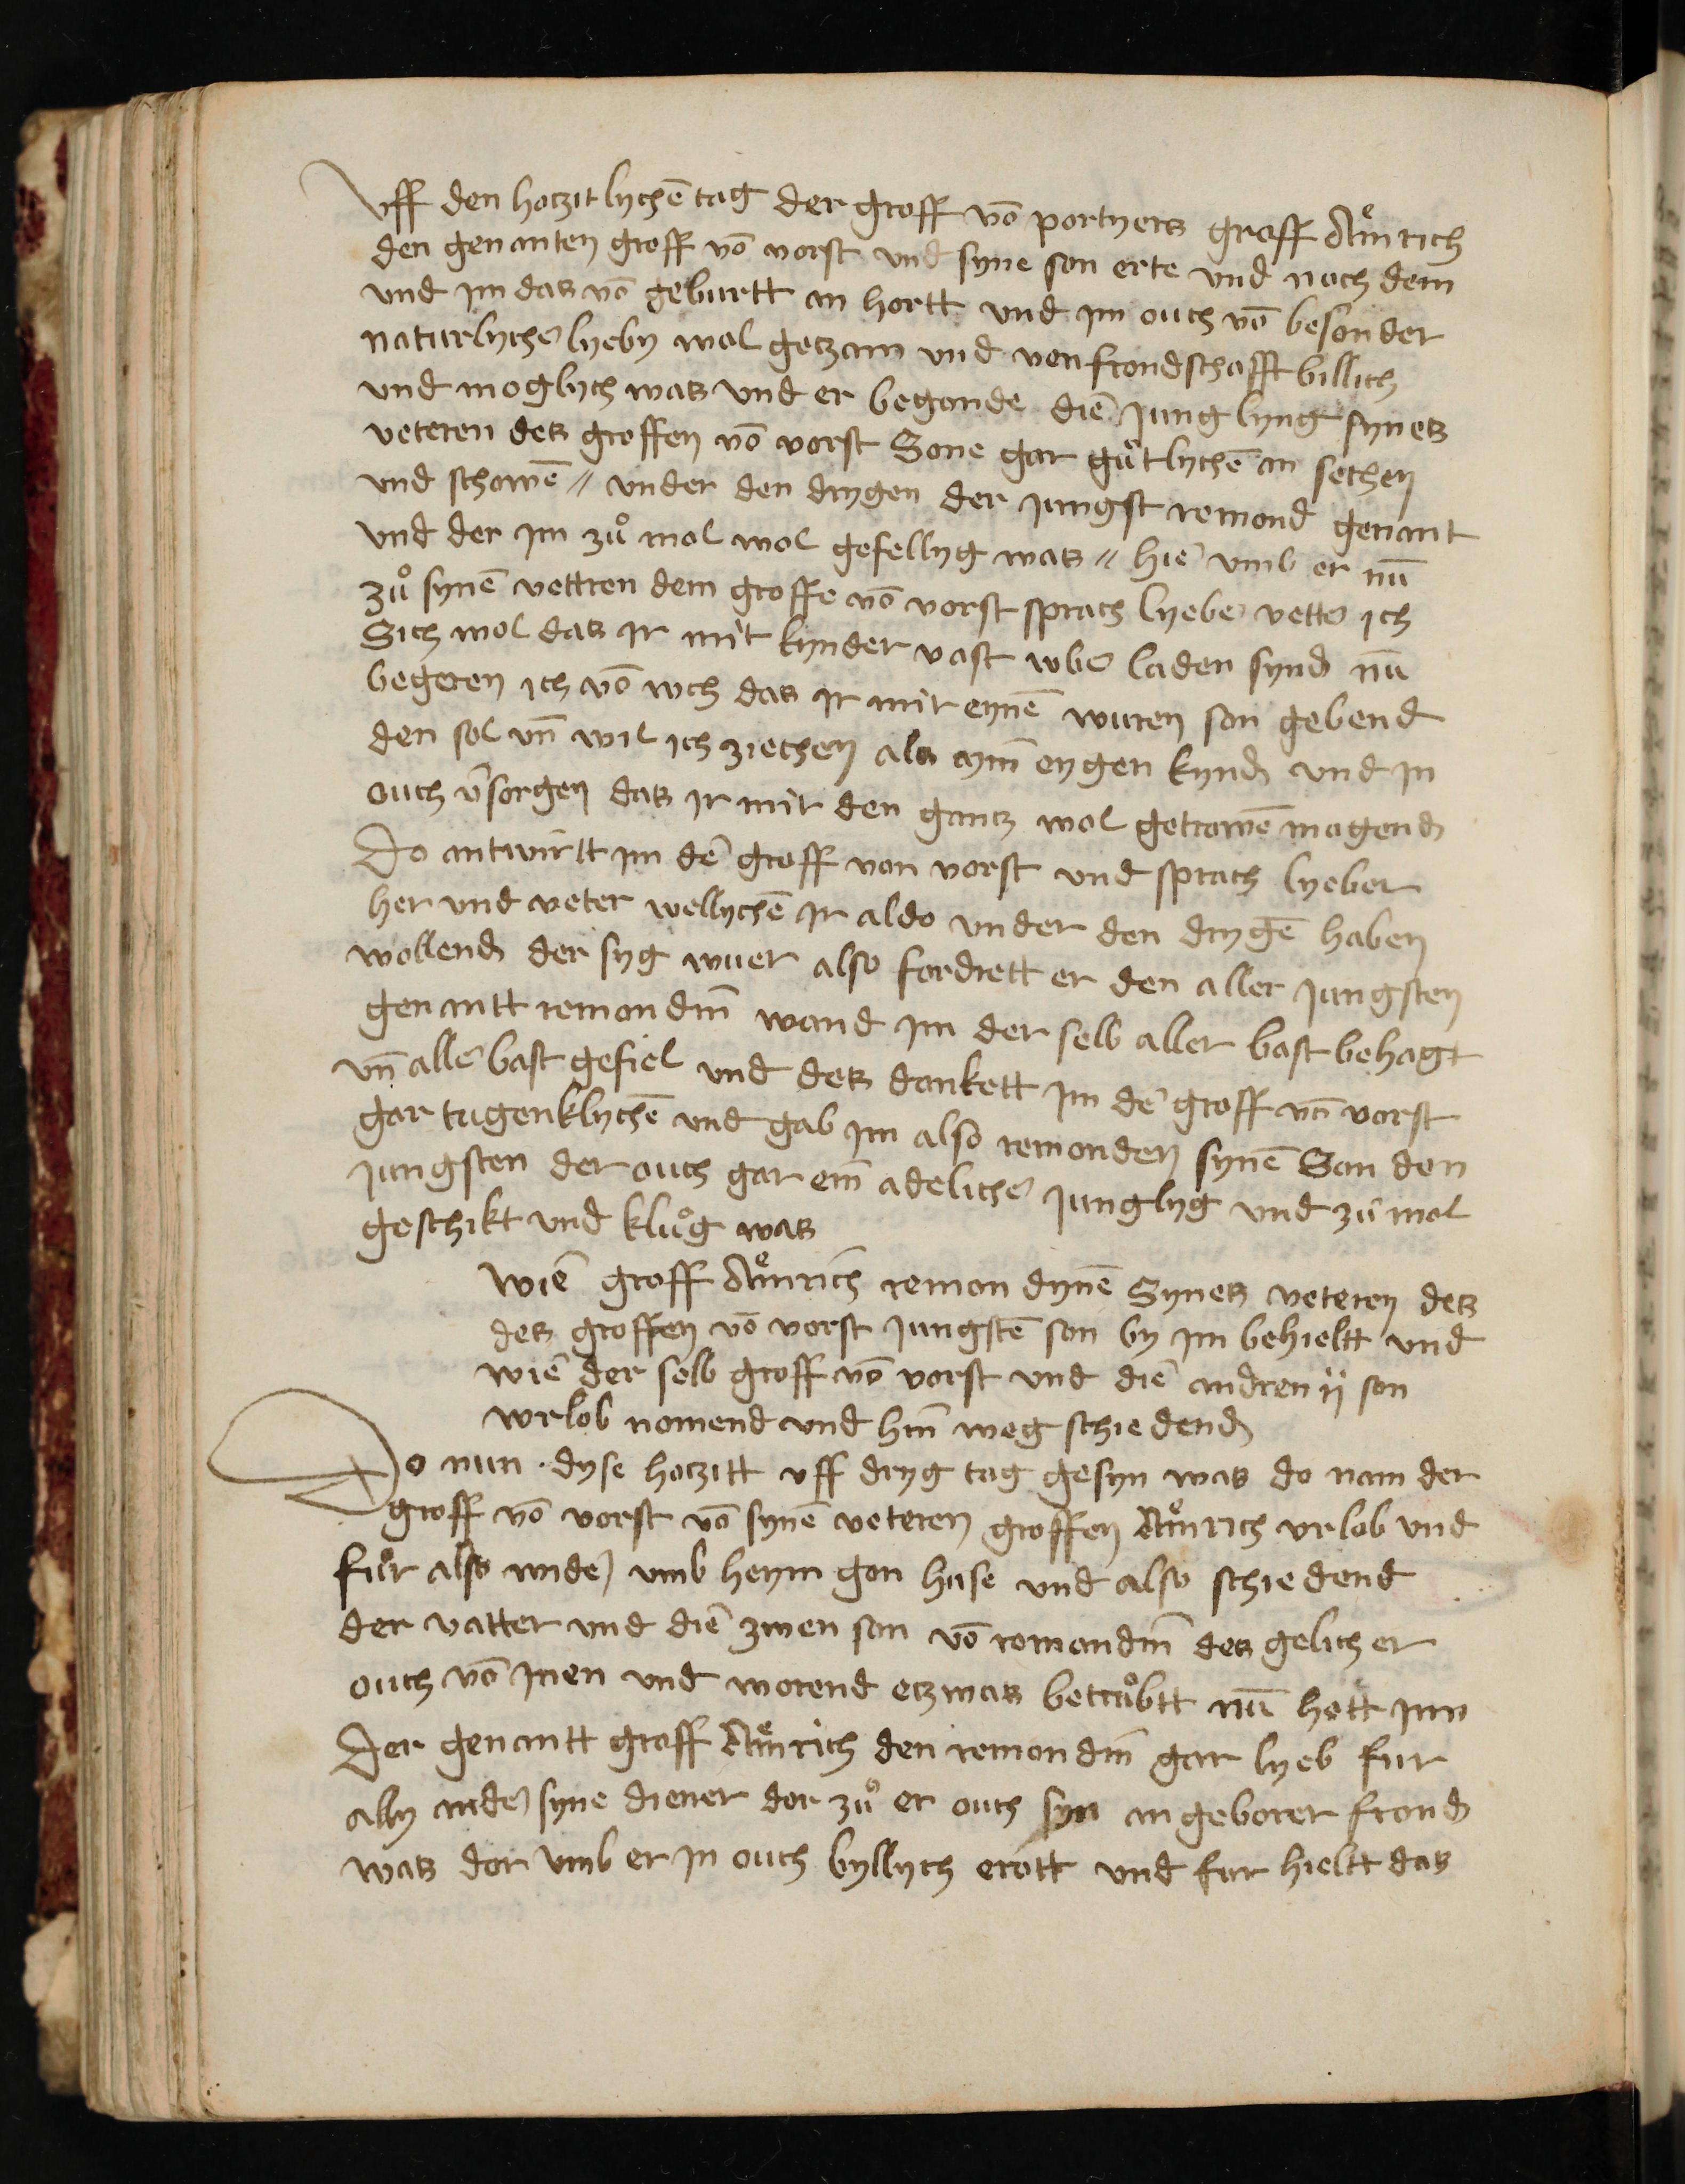 Vff den hoczitlychē tag der groff vō portyers groff Aͤmrich
den genanten groff vō vorst vnd syne son erte vnd noch dem
vnd jm das vō geburtt an hortt vnd jm ouch vō besonder
naturlycher lyeby wol getzam vnd von frondschafft billich
vnd moglych was vnd er begonde die jung lyng synes
veteren des groffen vō vorst Sone gar guͤtlychē an sechen
vnd schowē // vnder den drygen der jungst remond genant
vnd der jm zuͦ mol wol gefellyg was // hie vmb er nū
zuͦ synē vettren dem groffe vō vorst sprach lyeber vetter ich
Sich wol das jr mit kynder vast wber laden synd nū
begeren ich vō wch das jr mir eynē wuren son gebend
den sol vn̄ wil ich ziechen als aym̄ eygen kynd vnd jn
ouch v̄sorgen das jr mir den gantz wol getrowē mogend
Do antwirtt jm der groff von vorst vnd sprach lyeber
her vnd veter wellychē jr aldo vnder den drygē haben
wollend der syg wuer also fordrett er den aller jungsten
genantt remondin̄ wand jm der selb aller bast behagt
vn̄ aller bast gefiel vnd des dankett jm der groff vn̄ vorst
gar tugenklychē vnd gab jm also remonden synē Son den
jungsten der ouch gar ein̄ adelicher junglyg vnd zuͦ mol
geschikt vnd kluͦg was
wie groff Aͤmrich remon dynē Synes veteren des
des groffen vō vorst jungstē son by jm behieltt vnd
wie der selb groff vō vorst vnd die andren ij son
wrlob nomend vnd hin̄ weg schiedend
Do nun dyse hoczitt vff dryg tag gesyn was do nam der
groff vō vorst vō synē veteren groffen Aͤmrich vrlob vnd
fuͦr also wider vmb heym gon huse vnd also schiedend
der vatter vnd die zwen son vō romondin̄ des gelich er
ouch vō jnen vnd worend etzwas betruͦbtt nū hett jnn
Der genantt graff Aͤmrich den remondin̄ gar lyeb fur
ally ander syne diener dor zuͦ er ouch syn angeborer frond
was dor vmb er jn ouch byllych erott vnd for hieltt das